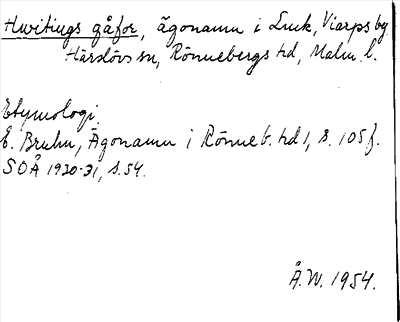 Hwitings gåfor, ägonamn i Luck, Viarps by
Härslövs sn, Rönnebergs hd, Malm. l.
Etymologi.
E. Bruhn, Ägonamn i Rönneb. hd 1, s. 105 f.
SOÅ 1930-31, s. 54.
Å. W. 1954.